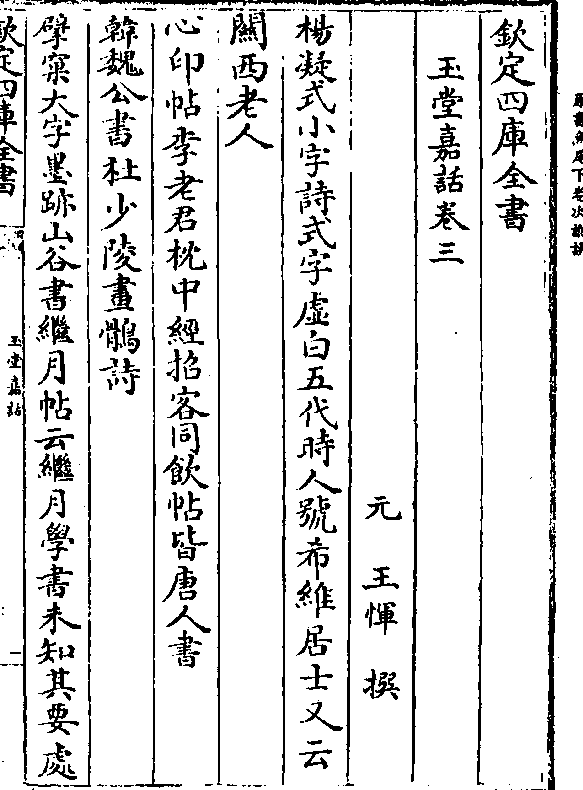 欽定四庫全書
玉堂嘉話卷三
元 王惲 撰
楊凝式小字詩式字虛白五代時人號希維居士又云
關西老人
心印帖李老君枕中經招客同飲帖皆唐人書
韓魏公書杜少陵畫鶻詩
擘窠大字墨跡山谷書繼月帖云繼月學書未知其要處
欽定四庫全書
玉堂嘉話